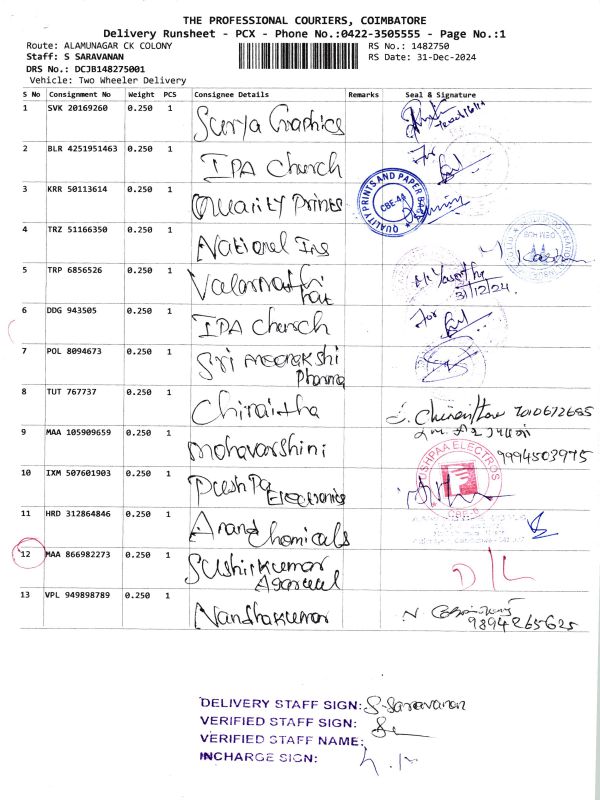 THE PROFESSIONAL COURIERS, COIMBATORE
Delivery Runsheet - PCX - Phone No.:0422-3505555 - Page No.:1
Route: ALAMUNAGAR CK COLONY
RS No.: 1482750
Staff: S SARAVANAN
RS Date: 31-Dec-2024
DRS No.: DCJB148275001
Vehicle: Two Wheeler Delivery
S No Consignment No Weight PCS Consignee Details Remarks Seal & Signature
1 SVK 20169260 0.250 1 Surya Graphics
2 BLR 4251951463 0.250 1 IPA Church For
3 KRR 50113614 0.250 1 Quality Prints
QUALITY PRINTS AND PAPER BAGS
CBE-44
4 TRZ 51166350 0.250 1 National Ins
5 TRP 6856526 0.250 1
31/12/24.
6 DDG 943505 0.250 1 IPA Church For
7 POL 8094673 0.250 1 Sri meenakshi
Pharma
8 TUT 767737 0.250 1 Chiraitha
9 MAA 105909659 0.250 1 mohavarshini 9994503975
10 IXM 507601903 0.250 1 Pushpa
Electronics
PUSHPAA ELECTROS
CBE-6
11 HRD 312864846 0.250 1 Anand
Chemicals
12 MAA 866982273 0.250 1 Sushilkumar
Agarwal
D/L
13 VPL 949898789 0.250 1 Nandhakumar N
9894265625
DELIVERY STAFF SIGN: S-Saravanan
VERIFIED STAFF SIGN:
VERIFIED STAFF NAME:
INCHARGE SIGN: